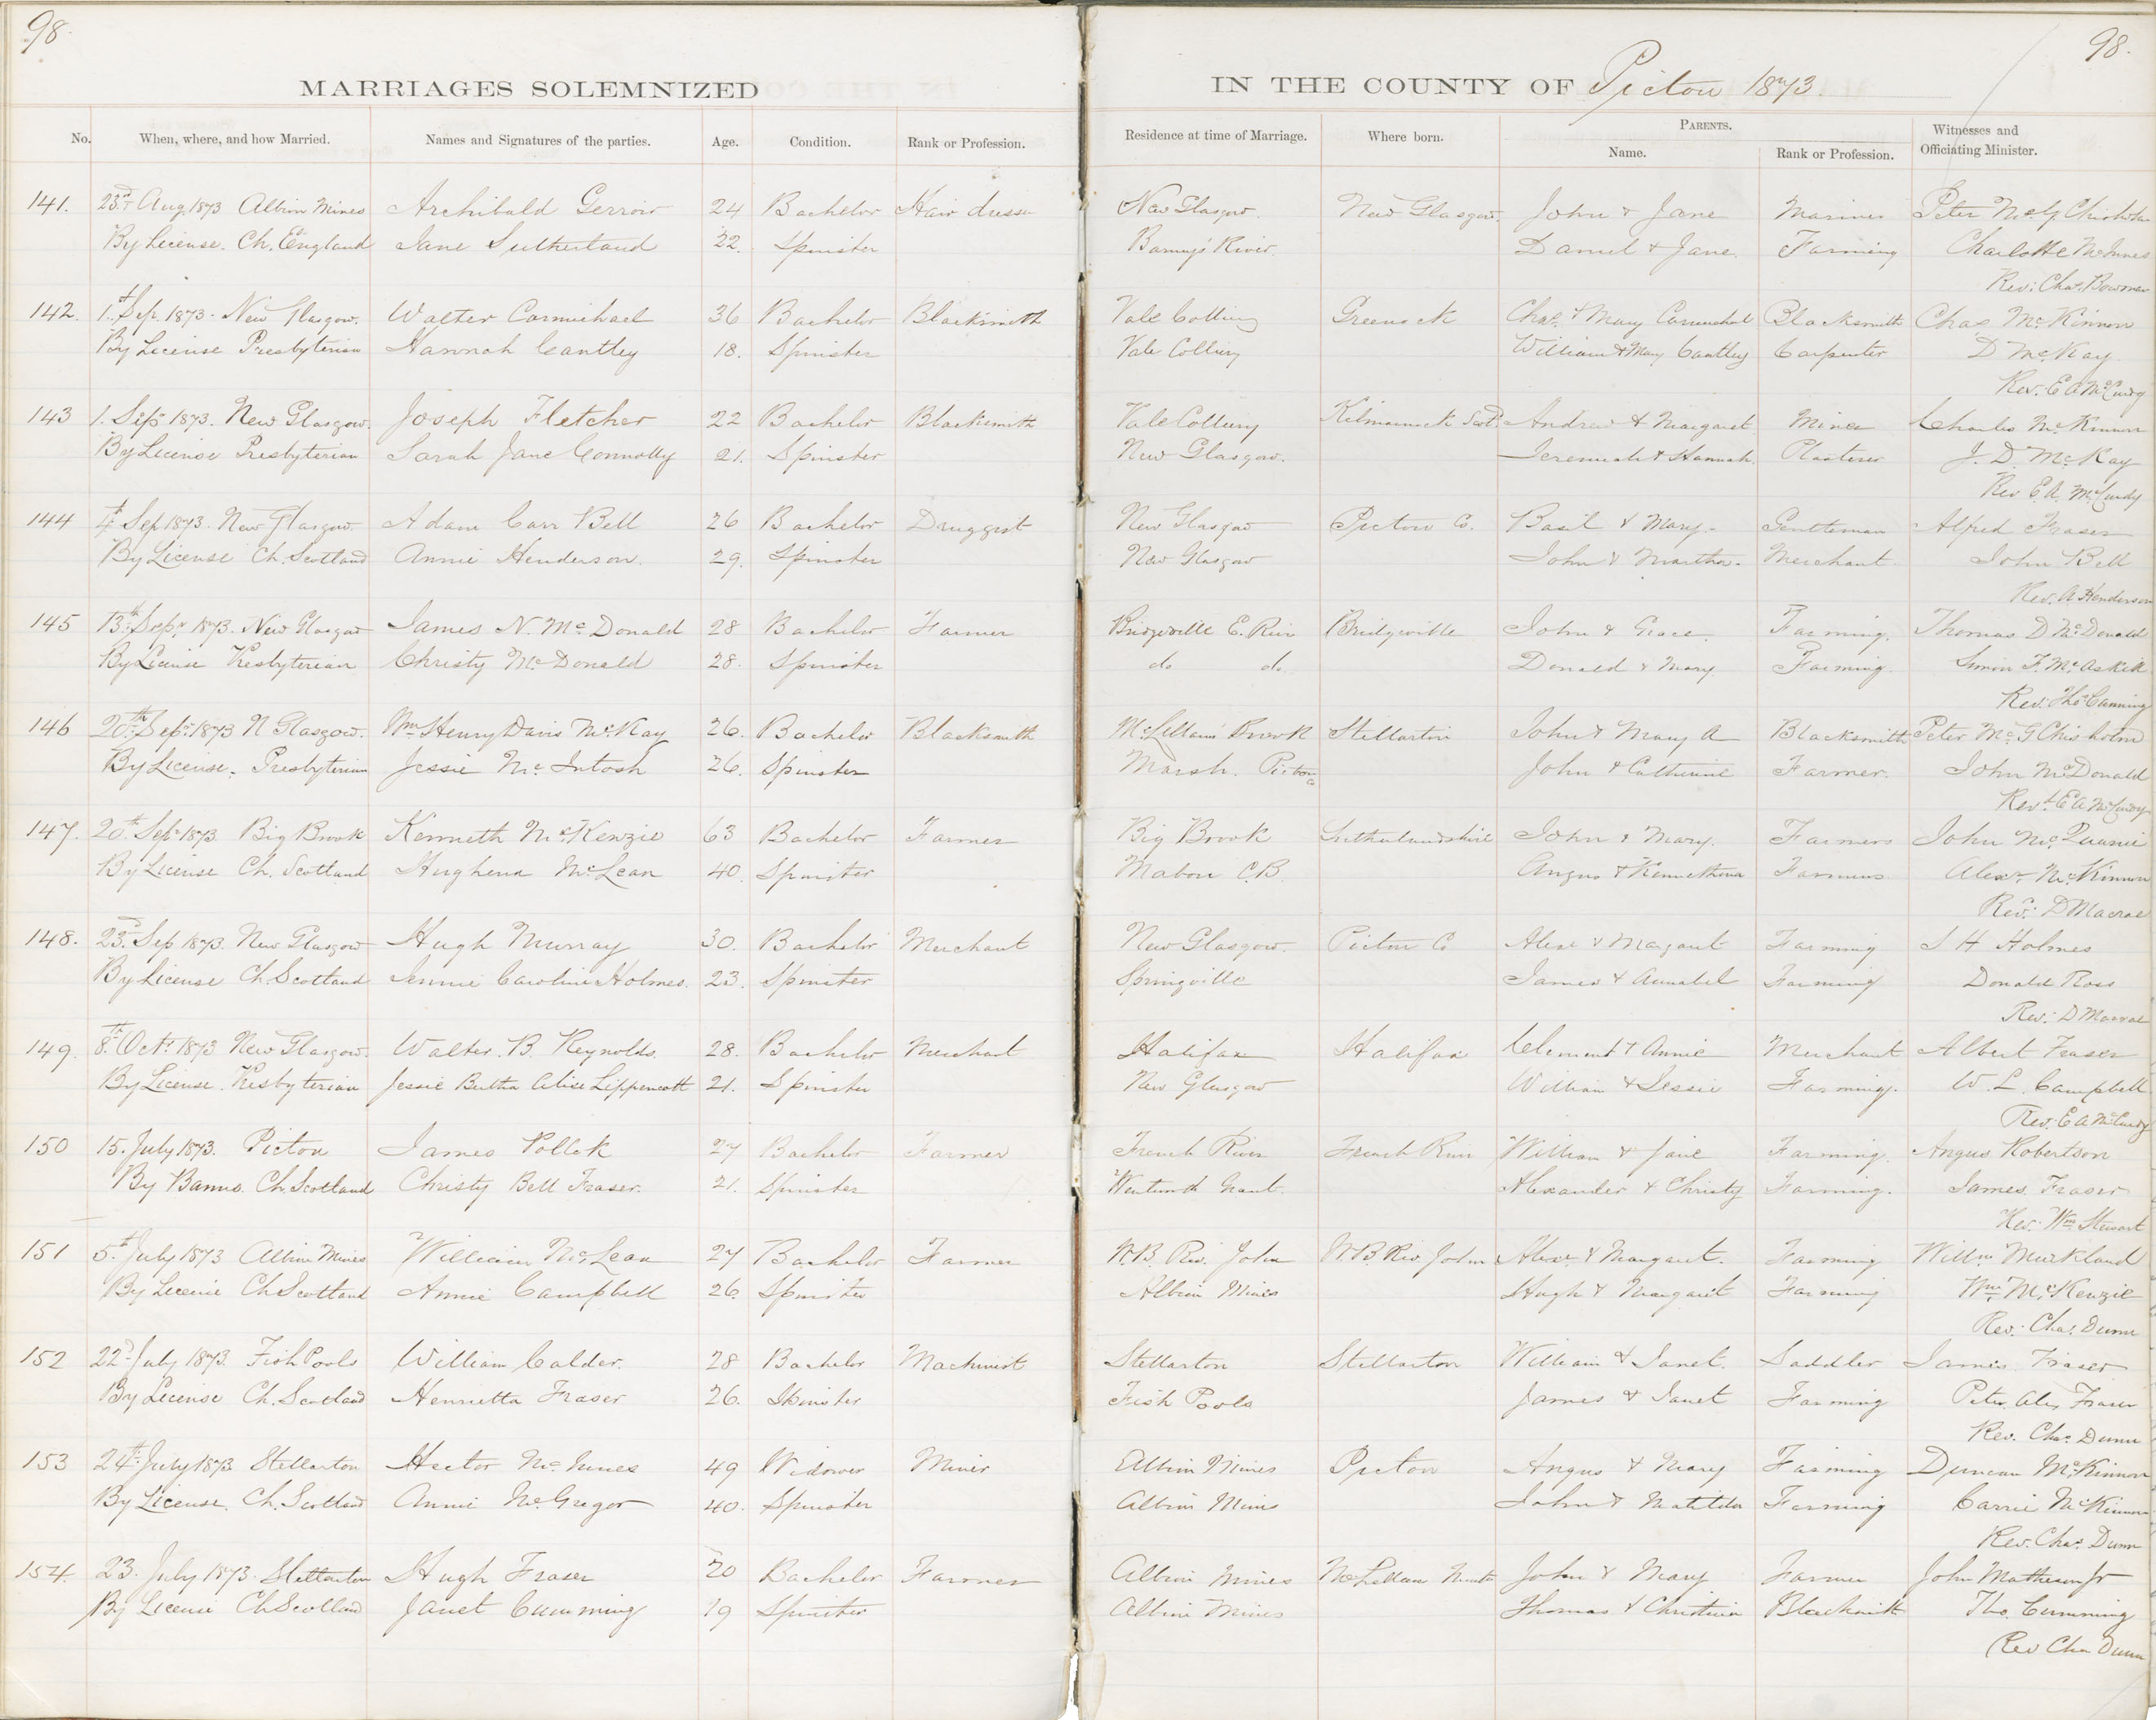 98.
98.
MARRIAGES SOLEMNIZED IN THE COUNTY OF Pictou 1873.
No. When, where, and how Married. Names and Signatures of the parties. Age. Condition. Rank or Profession. Residence at time of Marriage. Where born. PARENTS. Name. Rank or Profession. Witnesses and Officiating Minister.
141. 23rd Aug 1873 Albion Mines Archibald Gerroir 24 Bachelor Hair dresser New Glasgow. New Glasgow. John & Jane Mariner Peter McG Chisholm
By License. Ch. England Jane Sutherland 22. Spinster Barney's River. Daniel & Jane. Farming Charlotte McInnes
Rev: Chas. Bowman
142. 1st Sep. 1873. New Glasgow. Walter Carmichael 36 Bachelor Blacksmith Vale Colliery Greenock Chas. & Mary Carmichael Blacksmith Chas McKinnon
By License Presbyterian Hannah Cantley 18. Spinster Vale Colliery William & Mary Cantley Carpenter D McKay
Rev. E A McCurdy
143 1. Sep 1873. New Glasgow. Joseph Fletcher 22 Bachelor Blacksmith Vale Colliery Kilmarnock Scotd. Andrew & Margaret Miner Charles McKinnon
By License Presbyterian Sarah Jane Connolly 21. Spinster New Glasgow. Jeremiah & Hannah. Plasterer J. D. McKay
Rev E A. McCurdy
144 4th Sep 1873. New Glasgow Adam Carr Bell 26 Bachelor Druggist New Glasgow Pictou Co. Basil & Mary. Gentleman Alfred Fraser
By License Ch. Scotland Annie Henderson. 29. Spinster New Glasgow John & Martha. Merchant John Bell
Rev. A Henderson
145 13th Sepr. 1873. New Glasgow James N. McDonald 28 Bachelor Farmer Bridgeville E. River Bridgeville John & Grace. Farming. Thomas D McDonald
By License Presbyterian Christy McDonald 28. Spinster do do. Donald & Mary Farming. Simon F. McAskill
Rev. Thos Cumming
146 20th Sepr. 1873 N Glasgow. Wm Henry Davis McKay 26. Bachelor Blacksmith McLellans Brook Stellarton John & Mary A Blacksmith Peter McG Chisholm
By License. Presbyterian Jessie McIntosh 26. Spinster Marsh. Pictou Co John & Catherine Farmer. John McDonald
Revd. E A McCurdy
147. 20th Sep 1873 Big Brook Kenneth McKenzie 63 Bachelor Farmer Big Brook Sutherlandshire John & Mary. Farmers John McQuarrie
By License Ch. Scotland Hughena McLean 40. Spinster Mabou C.B. Angus & Kennethena Farmers Alexr. McKinnon
Revd. D Macrae
148. 23rd Sep 1873. New Glasgow Hugh Murray 30. Bachelor Merchant New Glasgow. Pictou Co Alexr & Margaret Farming J H Holmes
By License Ch. Scotland Jennie Caroline Holmes. 23. Spinster Springville James & Annabel Farming Donald Ross
Rev. D Macrae
149. 8th Octr. 1873 New Glasgow. Walter. B. Reynolds. 28. Bachelor Merchant Halifax Halifax Clement & Annie Merchant Albert Fraser
By License. Presbyterian Jessie Bertha Alice Lippencott 21. Spinster New Glasgow William & Jessie Farming. W. L. Campbell
Rev. E A McCurdy
150 15. July 1873. Pictou James Pollok 27 Bachelor Farmer French River French River William & Jane Farming. Angus Robertson
By Banns. Ch. Scotland Christy Bell Fraser. 21. Spinster Wentworth Grant. Alexander & Christy Farming. James Fraser
Rev. Wm Stewart
151 5th July 1873 Albion Mines William McLean 27 Bachelor Farmer W.B. Riv. John W.B. Riv. John Alexr & Margaret. Farming Willm Muirkland
By License Ch Scotland Annie Campbell 26. Spinster Albion Mines Hugh & Margaret Farming Wm McKenzie
Rev. Chas. Dunn
152 22nd July 1873. Fish Pools William Calder. 28 Bachelor Machinist Stellarton Stellarton William & Janet. Saddler James Fraser
By License Ch. Scotland Henrietta Fraser 26. Spinster Fish Pools James & Janet Farming Peter Alex Fraser
Rev. Chas. Dunn
153 24th July 1873 Stellarton Hector McInnes 49 Widower Miner Albion Mines Pictou Angus & Mary Farming Duncan McKinnon
By License. Ch. Scotland Annie McGregor 40. Spinster Albion Mines John & Matilda Farming Carrie McKinnon
Rev. Chas. Dunn
154. 23. July 1873. Stellarton Hugh Fraser 20 Bachelor Farmer Albion Mines McLellans Mount John & Mary Farmer John Matheson Jr
By License Ch Scotland Janet Cumming 19 Spinster Albion Mines Thomas & Christina Blacksmith Tho. Cumming
Rev Chas Dunn